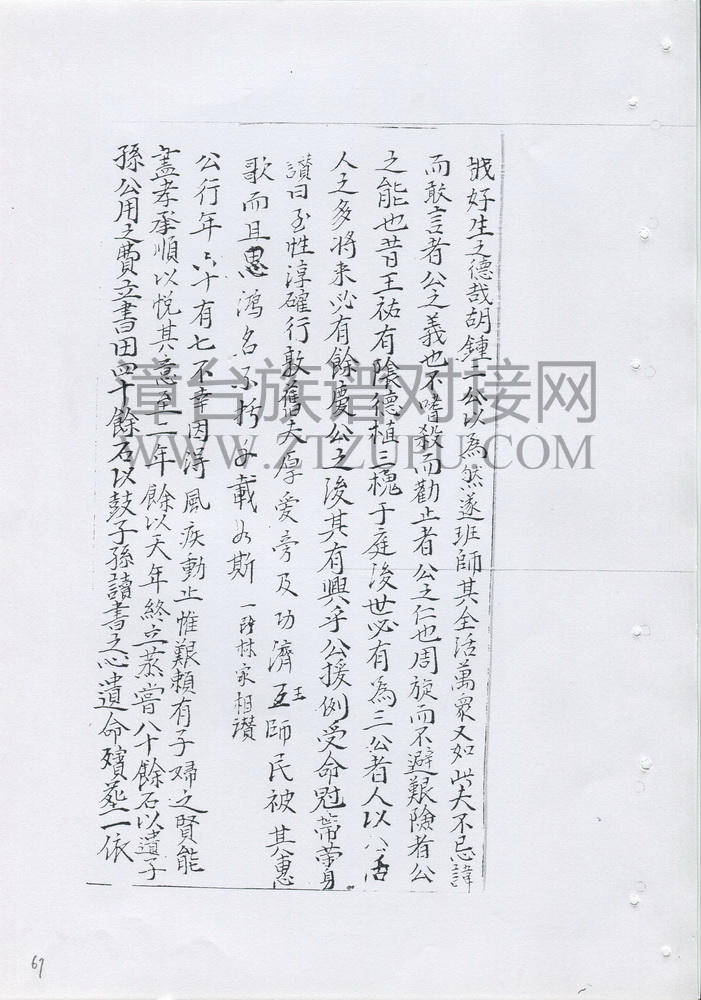 哉好生之德哉胡鍾二公以為然遂班師其全活萬衆又如此夫不忌諱
而敢言者公之義也不嗜殺而勸止者公之仁也周旋而不避艱險者公
之能也昔王祐有陰德植三槐于庭後世必有為三公者人以公活
人之多將来必有餘慶公之後其有興乎公援例受命冠帶榮身
讃曰至性淳確行敦舊夫厚爱旁及功濟王師民被其惠
歌而且思鴻名不朽載如斯 一段林家相讃
公行年六十有七不幸因得風疾動止惟艱頼有子婦之賢能
盖孝承順以悦其意至二年餘以天年終立蒸嘗八十餘石以遺子
孫公用之費立書田四十餘石以鼓子孫讀書之心遺命殯塟一依
章台族谱对接网
WWW.ZTZUPU.COM
67